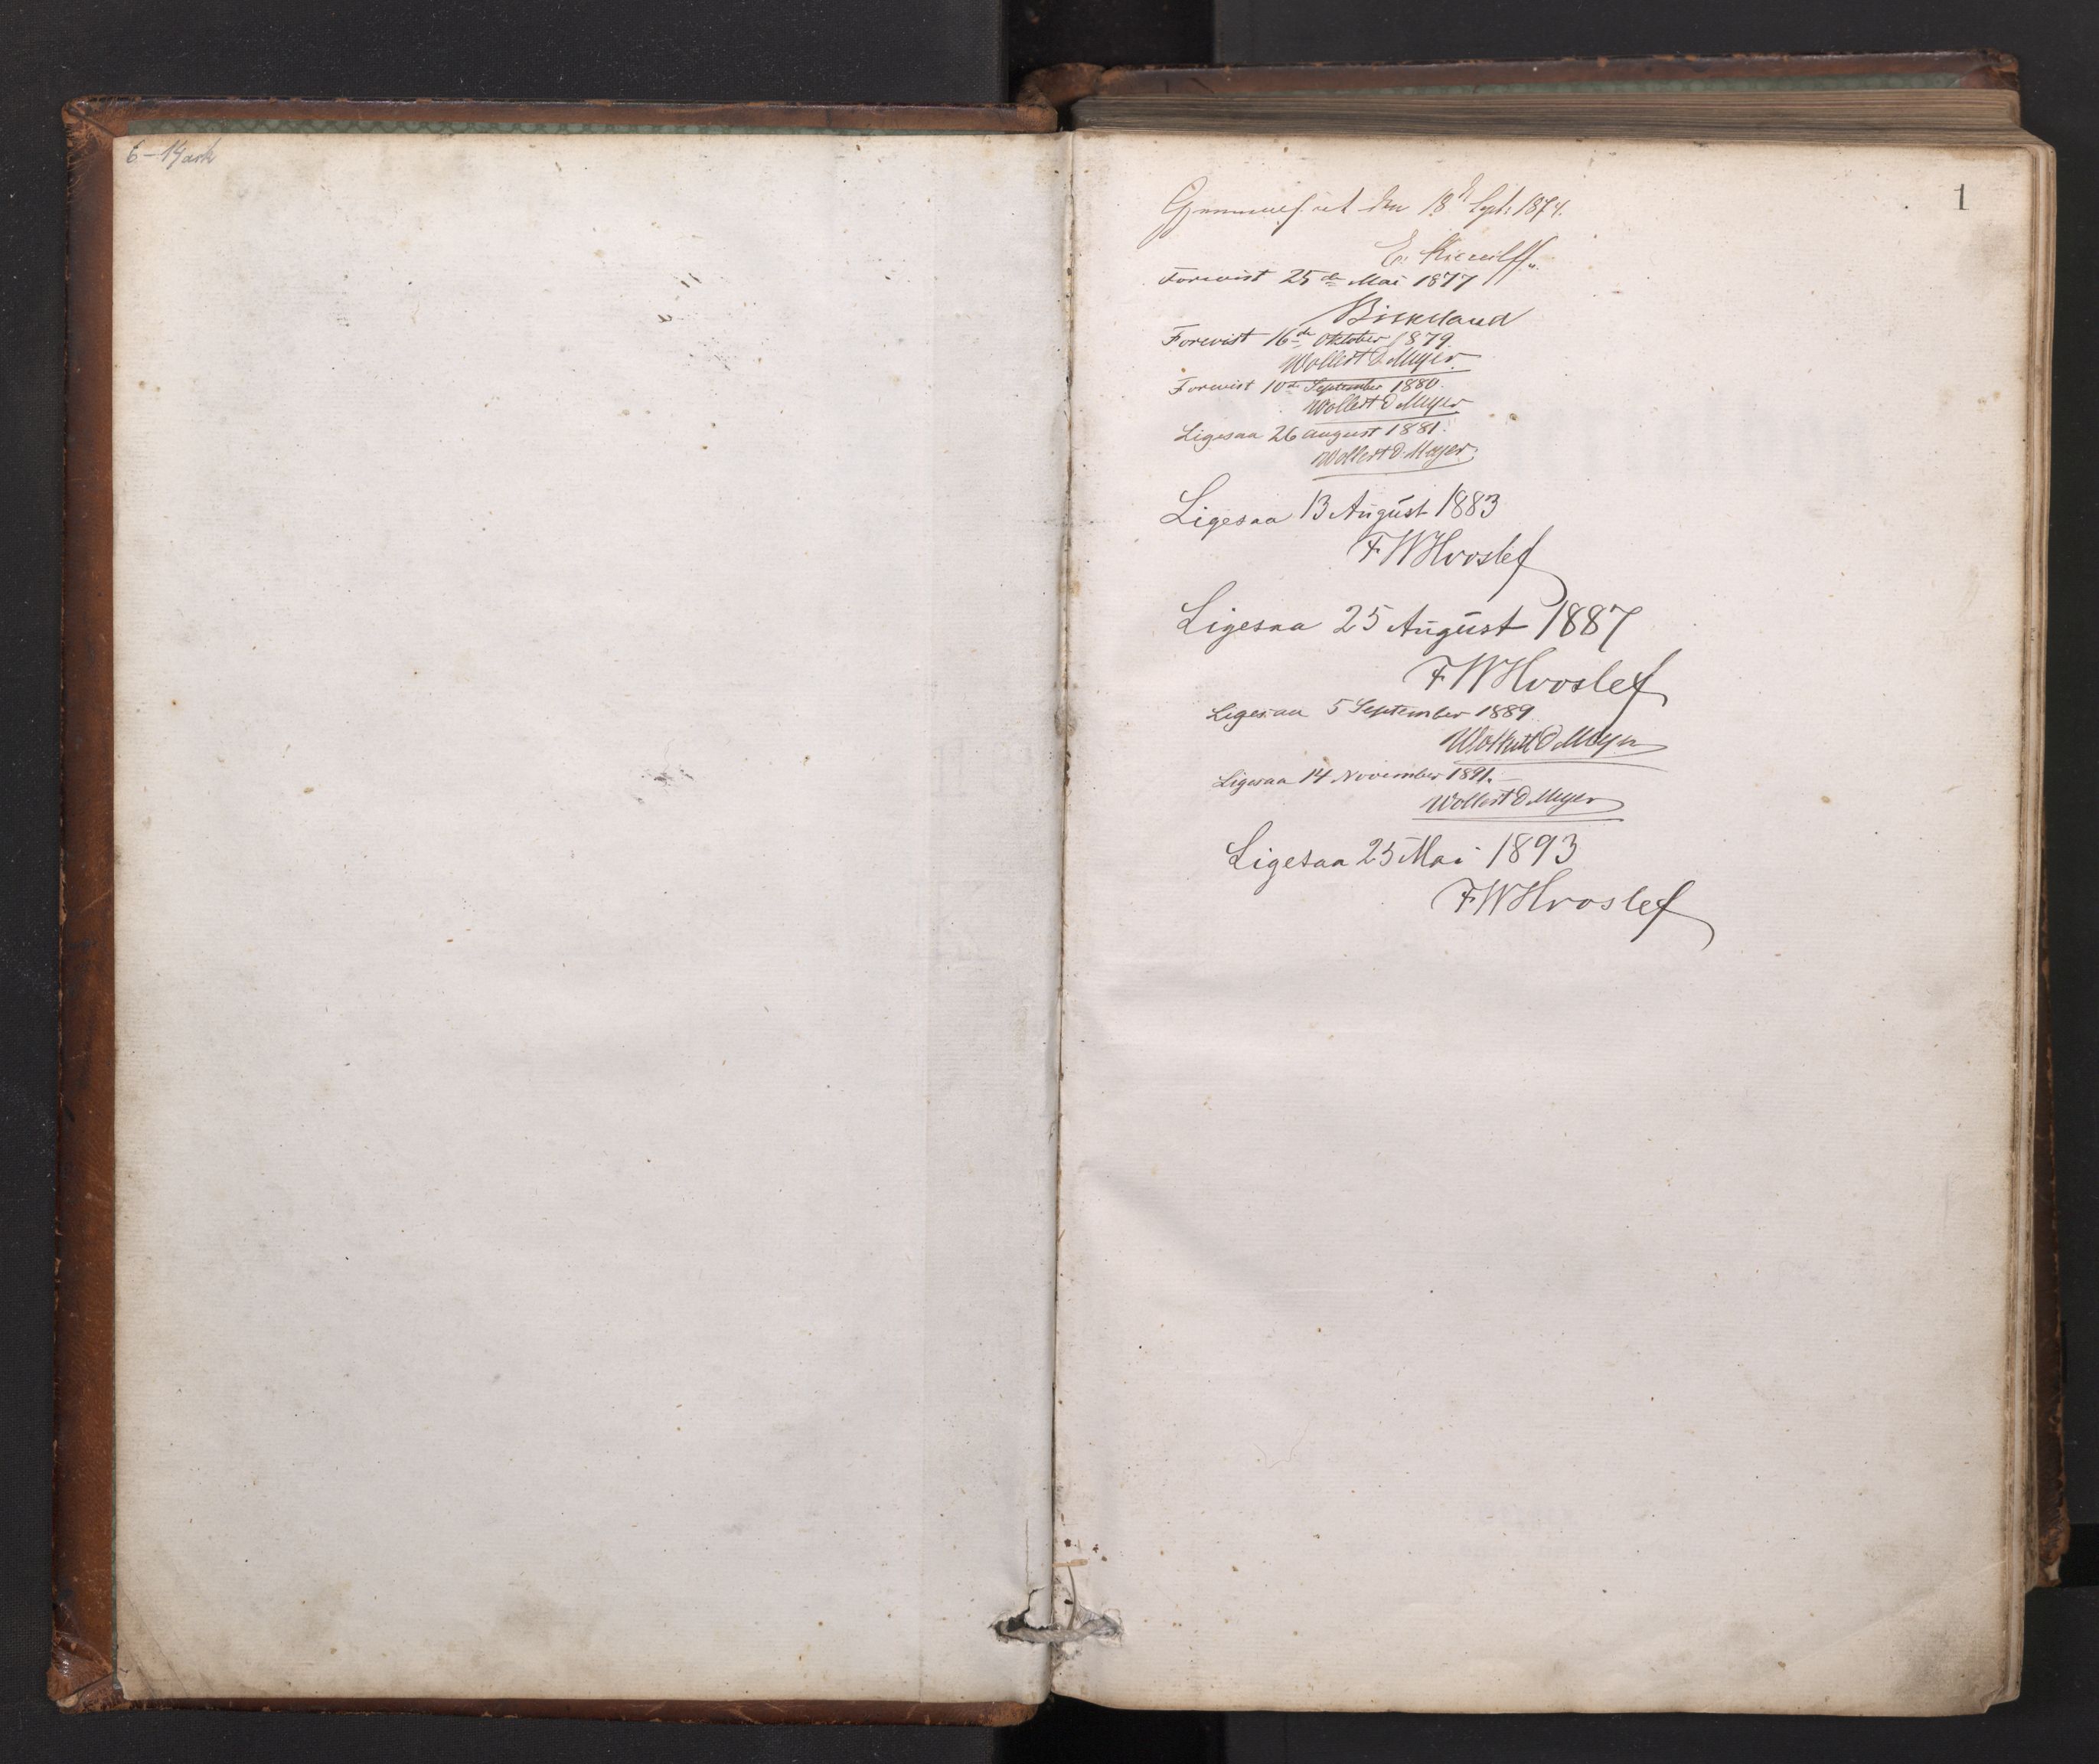 6 - 14 ark
1
Gjennemset den 18de Sept: 1874.
Forevist 25de Mai 1877
Birkeland
Forevist 16de Oktober 1879.
Wollert D Meyer
Forevist 10de September 1880.
Wollert D Meyer
Ligesaa 26 august 1881.
Wollert D. Meyer
Ligesaa 13 August 1883
FWHvoslef
Ligesaa 25 August 1887
FWHvoslef
Ligesaa 5 September 1889
Wollert D Meyer
Ligesaa 14 November 1891.
Wollert D Meyer
Ligesaa 25 Mai 1893
FWHvoslef